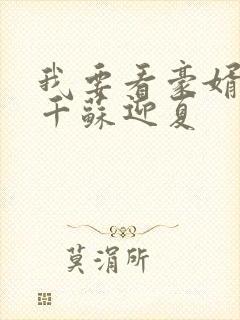 我要看豪婿
千苏迎夏
莫涓所